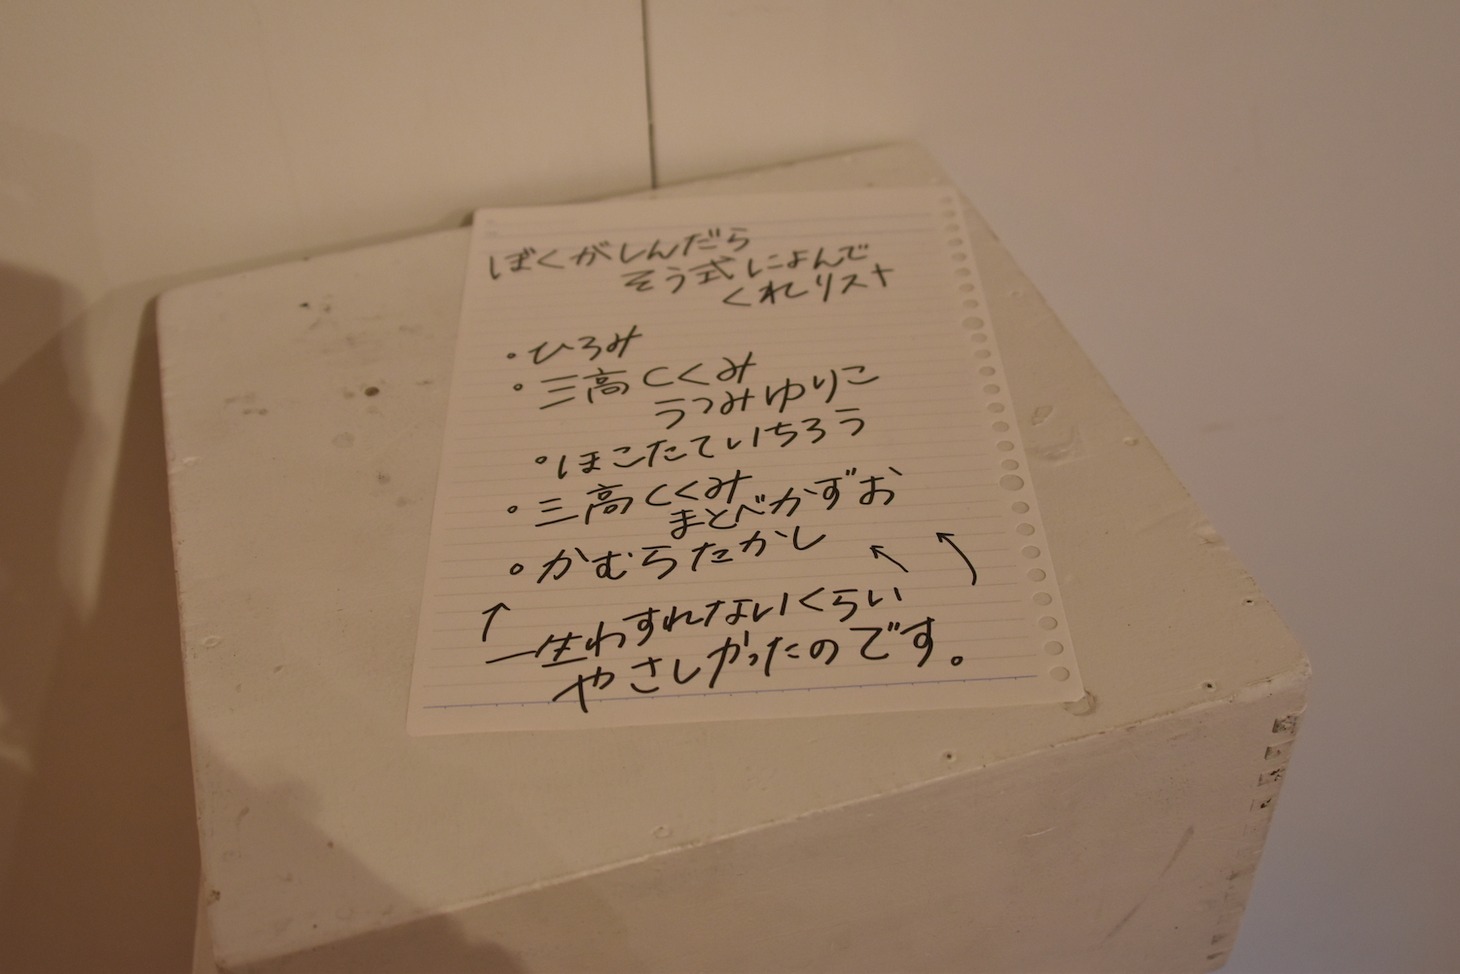 ぼくがしんだら
そう式によんで
くれリスト
・ひろみ
・三高Cくみ
うつみゆりこ
・ほこたていちろう
・三高Cくみ
まとべかずお
・かむらたかし
↑ ↖ ↖
一生わすれないくらい
やさしかったのです。